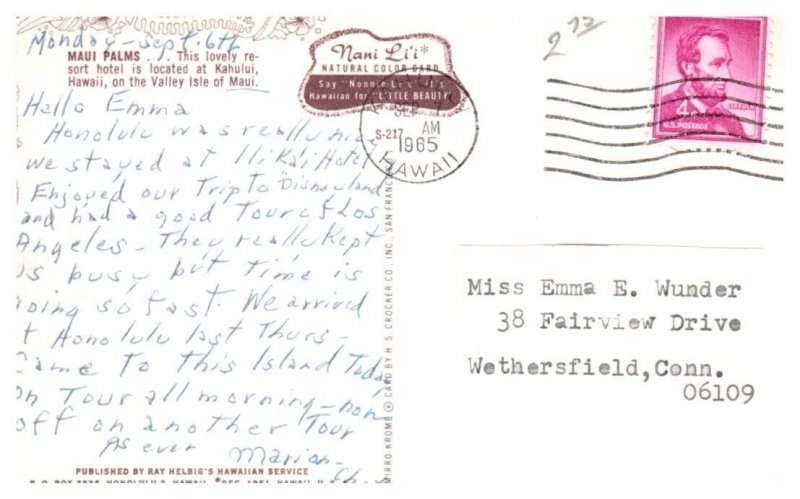 Monday - Sept. 6th
MAUI PALMS . . . This lovely re-
sort hotel is located at Kahului,
Hawaii, on the Valley Isle of Maui.
Hello Emma
Honolulu was really nice
we stayed at Ilikai Hotel
Enjoyed our Trip To "Disneyland
and had a good Tour of Los
Angeles - They really Kept
us busy but Time is
going so fast. We arrived
at Honolulu last Thurs -
Came To This Island Today
on Tour all morning - now
off on another Tour
As ever
Marion
PUBLISHED BY RAY HELBIG'S HAWAIIAN SERVICE
P. O. BOX 2835, HONOLULU 3, HAWAII *REG. 1951, HAWAII
Nani Li'i*
NATURAL COLOR CARD
Say "Nonnie Lee" It's
Hawaiian for "LITTLE BEAUTY"
MIRRO KROME ® CARD BY H. S. CROCKER CO., INC., SAN FRANC
SEP 7
S-217 AM
1965
HAWAII
2 72
4¢
LINCOLN
U.S. POSTAGE
Miss Emma E. Wunder
38 Fairview Drive
Wethersfield,Conn.
06109